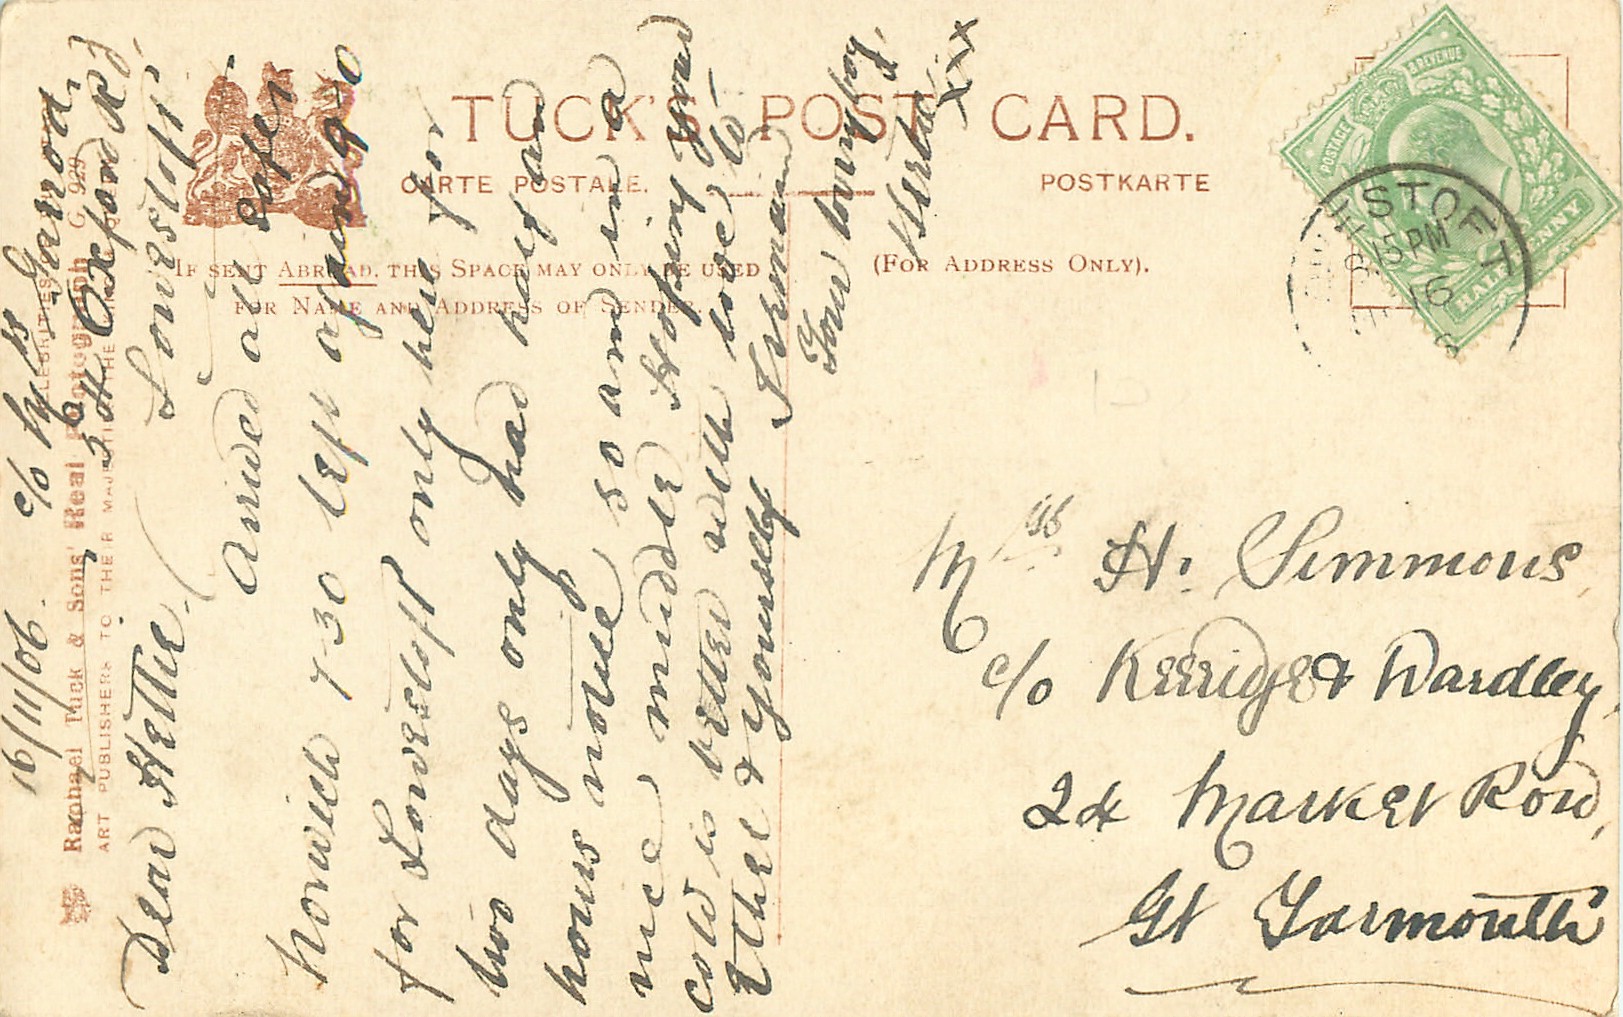 TUCK'S POST CARD.
CARTE POSTALE.
POSTKARTE
IF SENT ABROAD, THIS SPACE MAY ONLY BE USED
FOR NAME AND ADDRESS OF SENDER.
(FOR ADDRESS ONLY).
POSTAGE & REVENUE
HALF PENNY
STOFT
15 PM
16
Raphael Tuck & Sons' Real Photograph G. 929
ART PUBLISHERS TO THEIR MAJESTIES THE KING
16/11/06. c/o Mrs Garrod.
54 Oxford Rd,
Lowestoft
Dear Hettie,
Arrived all safe
Norwich 7-30 left again 9-20
for Lowestoft only here for
two days only had half an
hours notice so am in a
nice muddle Hoping your
cold is better with love to
Ethel & yourself
Your loving boy,
Herbt. XXX
Mrs H. Simmons
c/o Kerridge & Wardley,
24 Market Row,
Gt Yarmouth